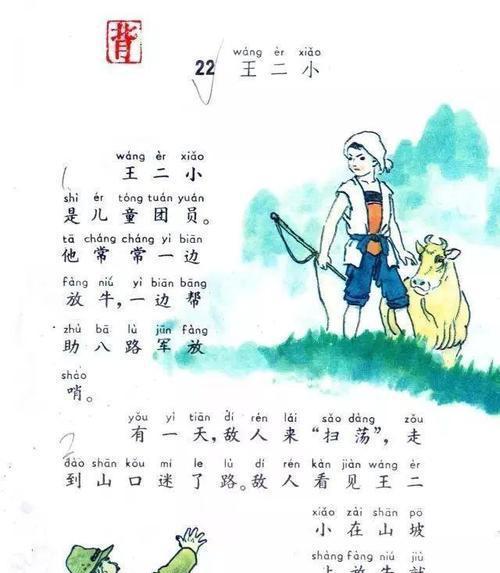 背
wáng èr xiǎo
22 王二小
wáng èr xiǎo
王二小
shì ér tóng tuán yuán
是儿童团员。
tā cháng cháng yì biān
他常常一边
fàng niú yì biān bāng
放牛，一边帮
zhù bā lù jūn fàng
助八路军放
shào
哨。
yǒu yì tiān dí rén lái sǎo dàng zǒu
有一天，敌人来“扫荡”，走
dào shān kǒu mí le lù dí rén kàn jiàn wáng èr
到山口迷了路。敌人看见王二
xiǎo zài shān pō
小在山坡
shàng fàng niú jiù
上放牛就